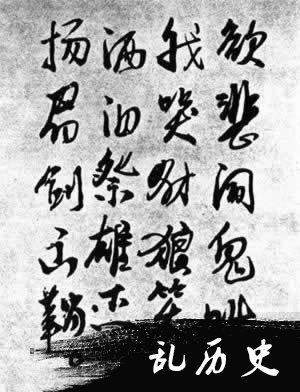 欲悲闻鬼叫
我哭豺狼笑
洒泪祭雄杰
扬眉剑出鞘。
乱历史